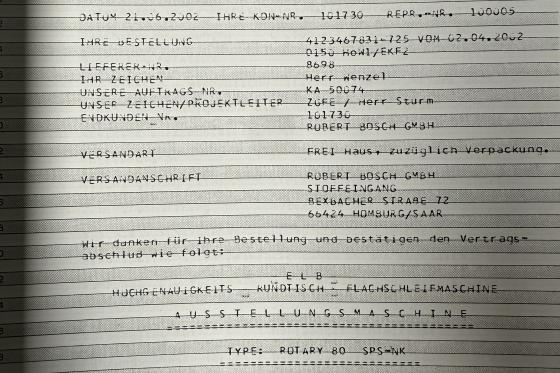 DATUM 21.06.2002 IHRE KDN-NR. 101730 REPR.-NR. 100005
IHRE BESTELLUNG 4123467831-725 VOM 02.04.2002
0150 HOW1/EKF2
LIEFERER-NR. 8698
IHR ZEICHEN Herr Wenzel
UNSERE AUFTRAGS NR. KA 50074
UNSER ZEICHEN/PROJEKTLEITER ZGFE / Herr Sturm
ENDKUNDEN Nr. 101730
ROBERT BOSCH GMBH
VERSANDART FREI Haus, zuzüglich Verpackung.
VERSANDANSCHRIFT ROBERT BOSCH GMBH
STOFFEINGANG
BEXBACHER STRAßE 72
66424 HOMBURG/SAAR
Wir danken für Ihre Bestellung und bestätigen den Vertrags-
abschluß wie folgt:
E L B
HOCHGENAUIGKEITS - RUNDTISCH - FLACHSCHLEIFMASCHINE
A U S S T E L L U N G S M A S C H I N E
TYPE: ROTARY 80 SPS-NK